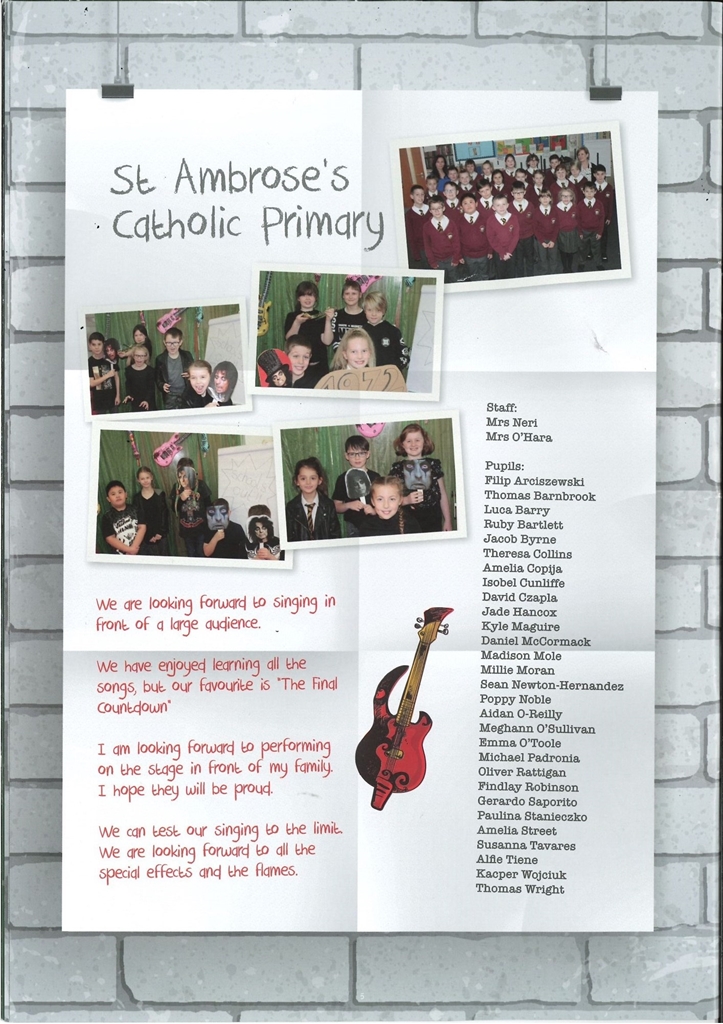 St Ambrose's
Catholic Primary
1972
We are looking forward to singing in
front of a large audience.
We have enjoyed learning all the
songs, but our favourite is "The Final
Countdown"
I am looking forward to performing
on the stage in front of my family.
I hope they will be proud.
We can test our singing to the limit.
We are looking forward to all the
special effects and the flames.
Staff:
Mrs Neri
Mrs O'Hara
Pupils:
Filip Arciszewski
Thomas Barnbrook
Luca Barry
Ruby Bartlett
Jacob Byrne
Theresa Collins
Amelia Copija
Isobel Cunliffe
David Czapla
Jade Hancox
Kyle Maguire
Daniel McCormack
Madison Mole
Millie Moran
Sean Newton-Hernandez
Poppy Noble
Aidan O-Reilly
Meghann O'Sullivan
Emma O'Toole
Michael Padronia
Oliver Rattigan
Findlay Robinson
Gerardo Saporito
Paulina Stanieczko
Amelia Street
Susanna Tavares
Alfie Tiene
Kacper Wojciuk
Thomas Wright